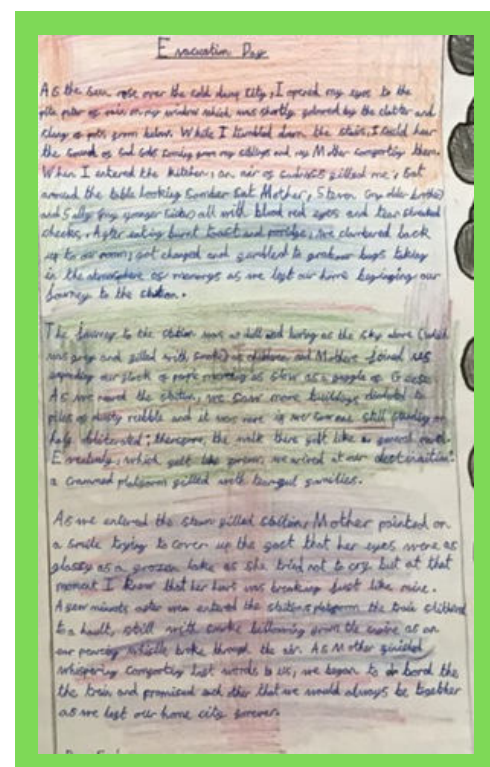 Evacuation Day
As the sun rose over the cold damp City, I opened my eyes to the
pita pater of rain on my window which was shortly followed by the clatter and
clang of pots from below. While I tumbled down the stairs, I could hear
the sound of sad sobs coming from my siblings and my Mother comforting them.
When I entered the kitchen, an air of sadness filled me; sat
around the table looking somber sat Mother, Steven (my older brother)
and Sally (my younger sister) all with blood red eyes and tear streaked
cheeks. After eating burnt toast and porridge, we clambered back
up to our rooms, got changed and our bags taking
in the atmosphere of memorys as we left our home begining our
Journey to the station.
The Journey to the station was as dull and boring as the sky above (which
was grey and filled with smoke) as children and Mothers Joined us
expanding our flock of people moving as slow as a gaggle of Geese.
As we neared the station, we saw more buildings
piles of dusty rubble and it was rare if we saw one still standing or
half obliterated; therefore, the walk there felt like a funeral march.
Eventualy, which felt like forever, we arived at our destination:
a crammed platform filled with tearful families.
As we entered the steam filled station, Mother painted on
a smile trying to cover up the fact that her eyes were as
glassy as a frozen lake as she tried not to cry but at that
moment I knew that her hart was breaking Just like mine.
A few minutes after we entered the stations platform the train slithered
to a hault, still with smoke billowing from the engine as an
ear peircing whistle broke through the air. As Mother finished
whispering comforting last words to us, we began to bord the
the train and promised each other that we would always be together
as we left our home city forever.